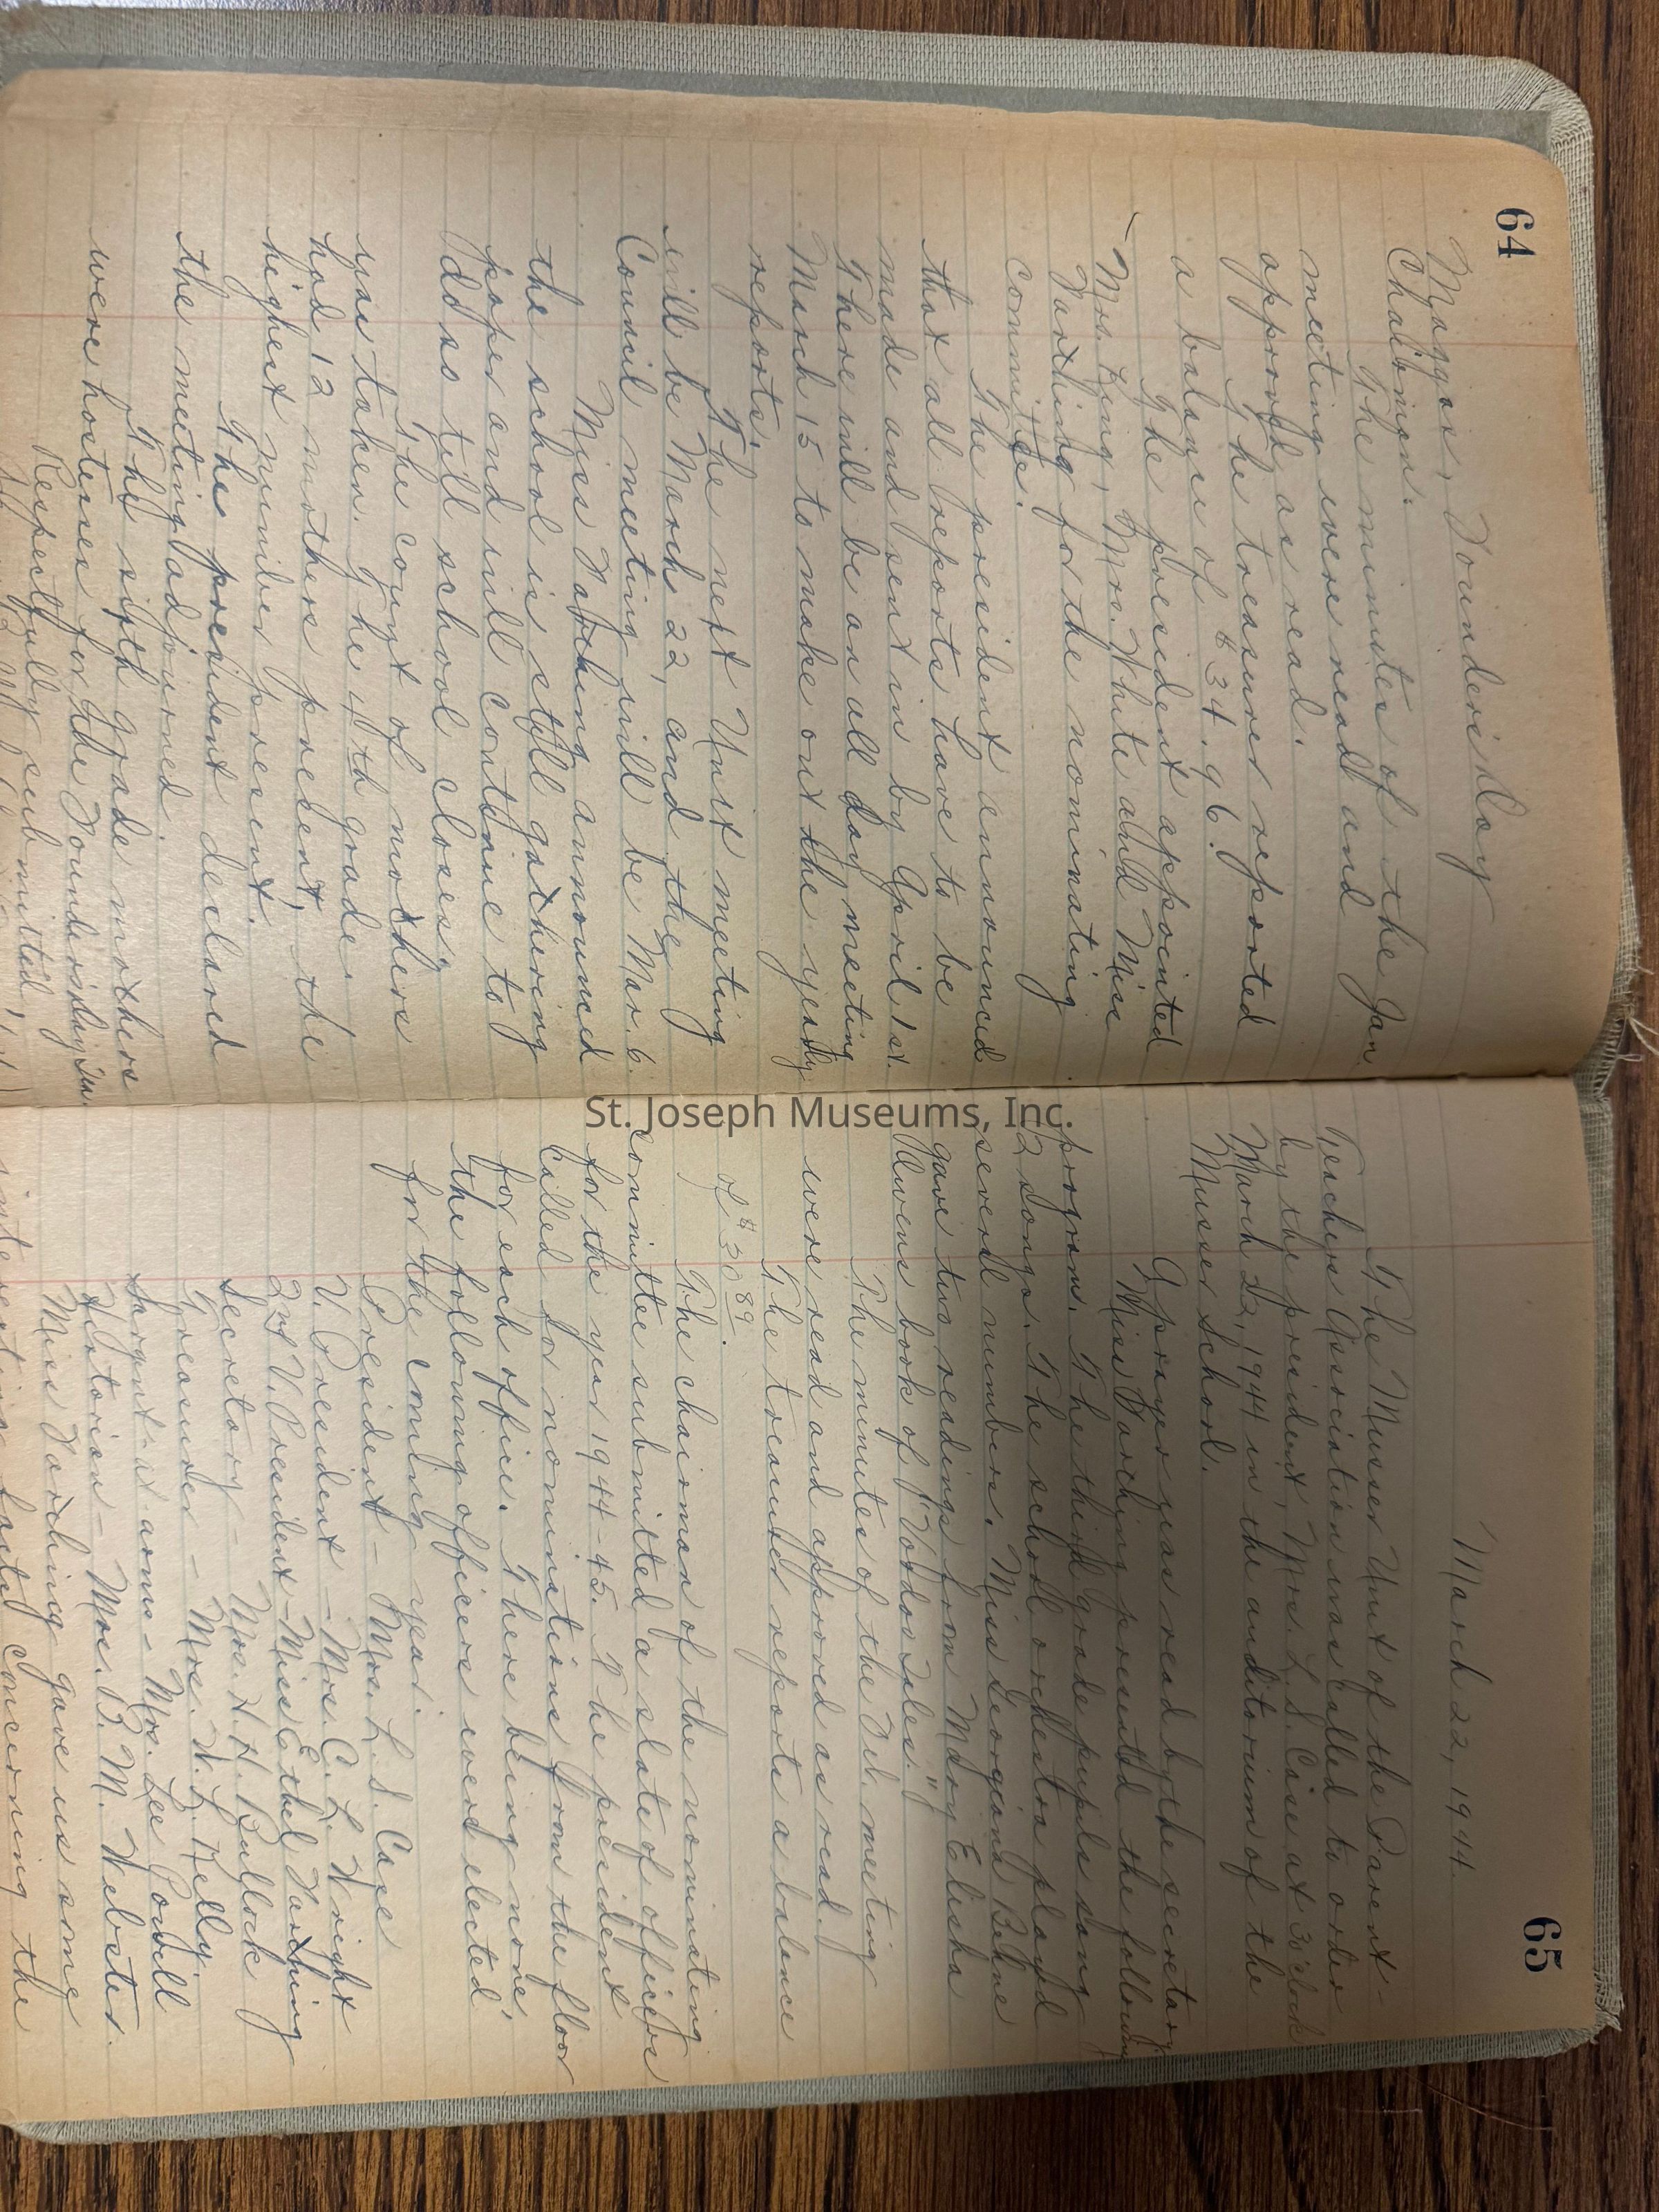 64
Maggie, Founder's Day
Chairman.
The minutes of the Jan.
meeting were read and
approved as read.
The treasurer reported
a balance of $34.96.
The president appointed
Mrs. King, Mrs. White and Miss
Farthing for the nominating
committee.
The president announced
that all reports have to be
made and sent in by April 1st.
There will be an all day meeting
March 15 to make out the yearly
reports.
The next Unit meeting
will be March 22, and the
Council meeting will be Mar. 6.
Miss Farthing announced
the school is still gathering
paper and will continue to
do so till school closes.
The count of mothers
was taken. The 4th grade
had 12 mothers present, the
highest number present.
The president declared
the meeting adjourned.
The sixth grade mothers
were hostesses for the Founder's Day Tea.
Respectfully submitted,
65
March 22, 1944.
The Musser Unit of the Parent-
Teachers Association was called to order
by the president, Mrs. L. S. Case at 3 o'clock
March 22, 1944 in the auditorium of the
Musser School.
A prayer was read by the secretary.
Miss Farthing presented the following
program. The third grade pupils sang
2 songs. The school orchestra played
several numbers. Miss Georgiana Behne
gave two readings from Mary Elisha
Owens book of "Voodoo Tales."
The minutes of the Feb. meeting
were read and approved as read.
The treasurer reports a balance
of $30.89.
The chairman of the nominating
committee submitted a slate of officers
for the year 1944-45. The president
called for nominations from the floor
for each office. There being none,
the following officers were elected
for the coming year.
President - Mrs. L. S. Case
V. President - Mrs. C. L. Wright
2nd V. President - Miss Ethel Farthing
Secretary - Mrs. H. H. Bullock
Treasurer - Mrs. W. L. Kelly.
Sargent-at-arms - Mrs. Lee Powell
Historian - Mrs. B. M. Webster.
Miss Farthing gave us some
interesting facts concerning the
St. Joseph Museums, Inc.